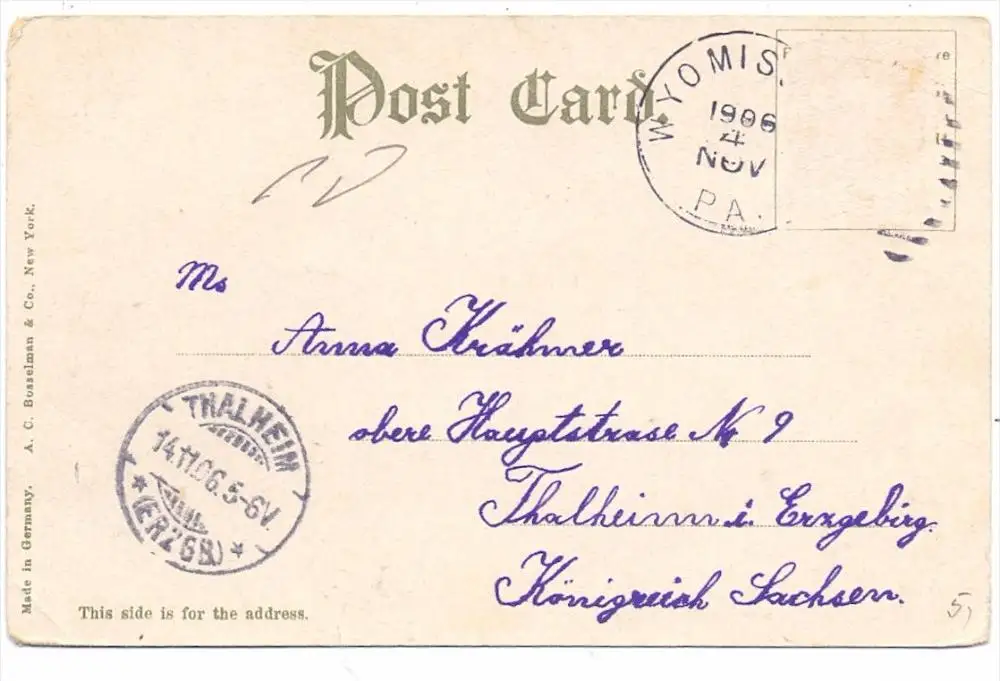 Post Card.
WYOMIS.
1906
4
NOV
PA.
Ms
Anna Krähmer
obere Hauptstrase Nr 9
Thalheim i. Erzgebirg.
Königreich Sachsen.
THALHEIM
14.11.06.5-6V.
* (ERZGB.) *
This side is for the address.
Made in Germany. A. C. Bosselman & Co., New York.
5,